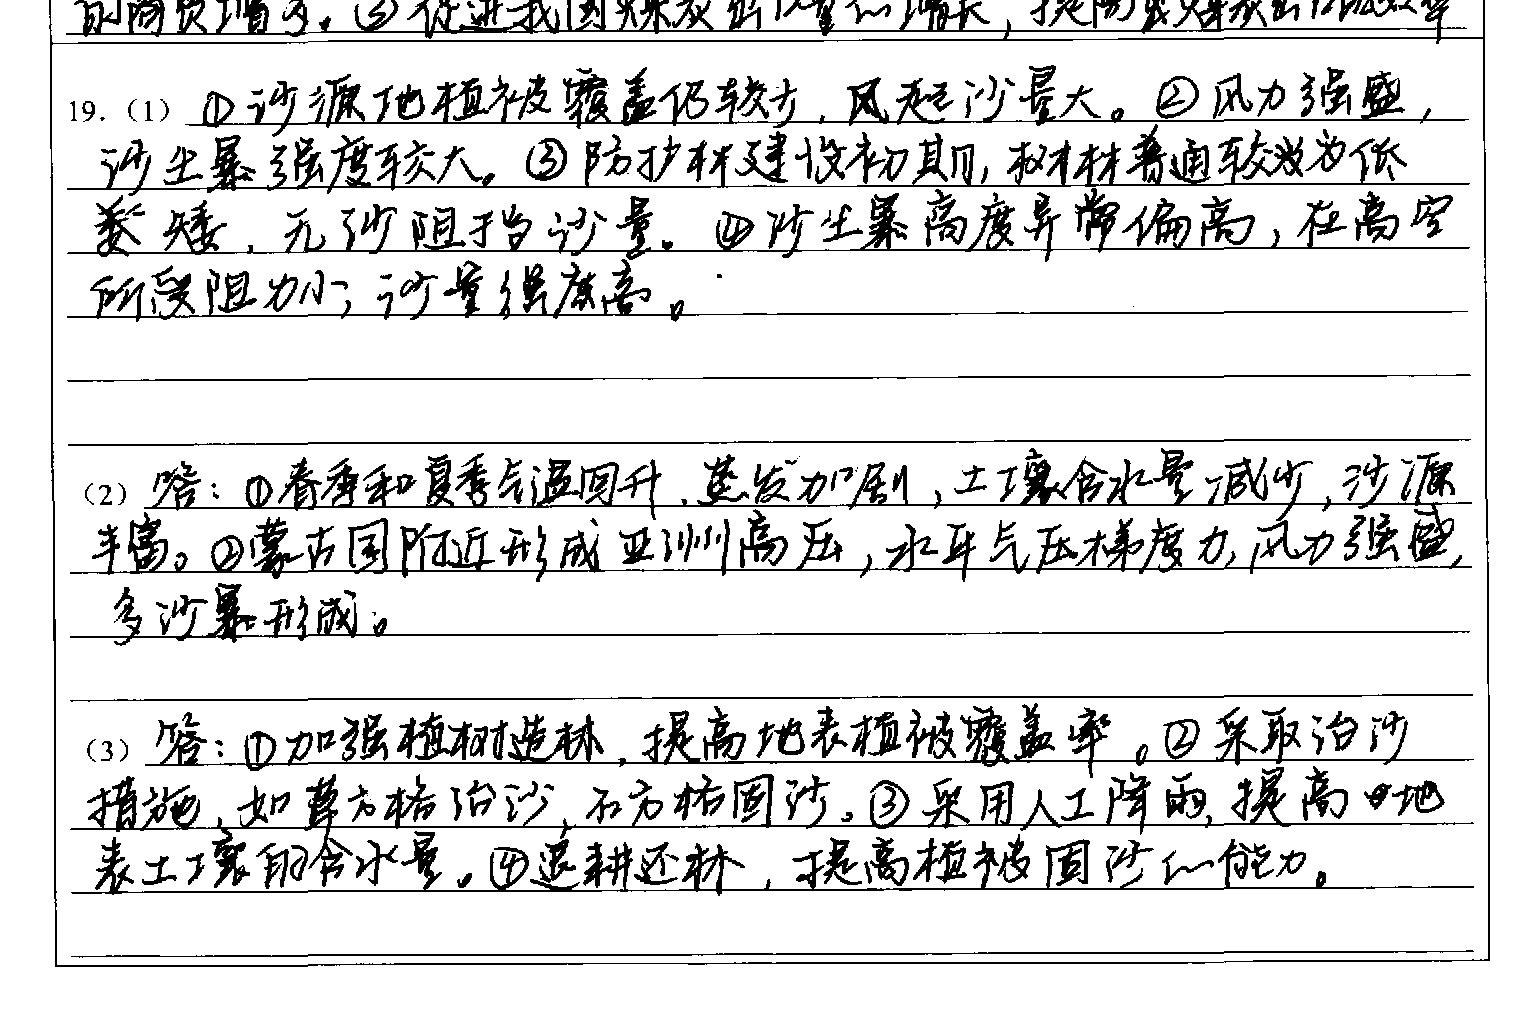 的商贸增多。③促进我国煤炭出口量的增长，提高我煤炭出口效率
19.（1）①沙源地植被覆盖仍较少，风起沙量大。②风力强盛，
沙尘暴强度较大。③防护林建设初期，树林普通较为低
矮，无沙阻挡沙量。④沙尘暴高度异常偏高，在高空
所受阻力小，沙量强度高。
（2）答：①春季和夏季气温回升，蒸发加剧，土壤含水量减少，沙源
丰富。②蒙古国附近形成亚洲高压，水平气压梯度力，风力强盛，
多沙暴形成。
（3）答：①加强植树造林，提高地表植被覆盖率。②采取治沙
措施，如草方格治沙，石方格固沙。③采用人工降雨，提高地
表土壤的含水量。④退耕还林，提高植被固沙的能力。